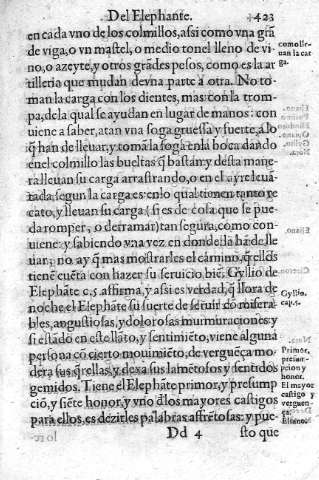 Del Elephante.
423
en cada vno de los colmillos, assi como vna grã
de viga, o vn mastel, o medio tonel lleno de vi-
no, o azeyte, y otros grãdes pesos, como es la ar
tilleria que mudan de vna parte a otra. No to-
man la carga con los dientes, mas con la trom-
pa, de la qual se ayudan en lugar de manos: con
uiene a saber, atan vna soga gruessa y fuerte, a lo
q̃ han de lleuar, y tomã la soga en la boca dando
en el colmillo las bueltas q̃ bastan: y desta mane
ra lleuan su carga arrastrando, o en el ayre leuã-
tada segun la carga es: en lo qual tienen tanto re
cato, y lleuan su carga (si es de cosa que se pue-
da romper, o derramar) tan segura, como con-
uiene: y sabiendo vna vez en donde la hã de lle
uar, no ay q̃ mas mostrarles el camino, q̃ ellos
tienē cuēta con hazer su seruicio biē. Gyllio de
Elephãte c.5 affirma, y assi es verdad, q̃ llora de
noche el Elephãte su suerte de seruir cõ misera-
bles, angustiosas, y dolorosas murmuraciones: y
si estãdo en este llãto, y sentimiēto, viene alguna
persona cõ cierto mouimiēto, de vergueça mo-
dera sus q̃rellas, y dexa sus lamētosos y sentidos
gemidos. Tiene el Elephãte primor, y presump
ciõ, y siēte honor, y vno d̃ los mayores castigos
para ellos, es dezirles palabras affrētosas: y pue-
Dd 4
sto que
como lle-
uan la car
ga.
Gyllio.
cap. 5.
Primor,
presun-
pcion y
honor.
El mayor
castigo y
verguen-